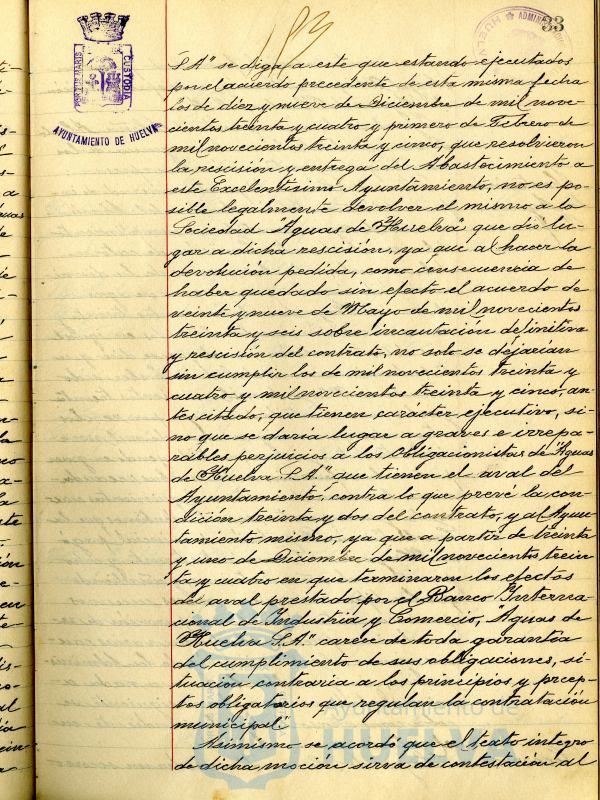 33
PORTUS MARIS
CUSTODIA
AYUNTAMIENTO DE HUELVA
S.A" se diga a este que estando ejecutados
por el acuerdo precedente de esta misma fecha
los de diez y nueve de Diciembre de mil nove-
cientos treinta y cuatro y primero de Febrero de
mil novecientos treinta y cinco, que resolvieron
la rescisión y entrega del Abastecimiento a
este Excelentísimo Ayuntamiento, no es po-
sible legalmente devolver el mismo a la
Sociedad "Aguas de Huelva" que dió lu-
gar a dicha rescisión, ya que al hacer la
devolución pedida, como consecuencia de
haber quedado sin efecto el acuerdo de
veinte y nueve de Mayo de mil novecientos
treinta y seis sobre incautación definitiva
y rescisión del contrato, no solo se dejarían
sin cumplir los de mil novecientos treinta y
cuatro y mil novecientos treinta y cinco, an-
tes citado, que tienen carácter ejecutivo, si-
no que se daría lugar a graves e irrepa-
rables perjuicios a los Obligacionistas de "Aguas
de Huelva S.A." que tienen el aval del
Ayuntamiento, contra lo que prevé la con-
dición treinta y dos del contrato, y al Ayun-
tamiento mismo, ya que a partir de treinta
y uno de Diciembre de mil novecientos trein
ta y cuatro en que terminaron los efectos
de aval prestado por el Banco Interna-
cional de Industria y Comercio, "Aguas de
Huelva S.A." carece de toda garantía
del cumplimiento de sus obligaciones, si-
tuación contraria a los principios y precep-
tos obligatorios que regulan la contratación
municipal".
Asimismo se acordó que el texto integro
de dicha moción sirva de contestación al
Ayuntamiento de
HUELVA